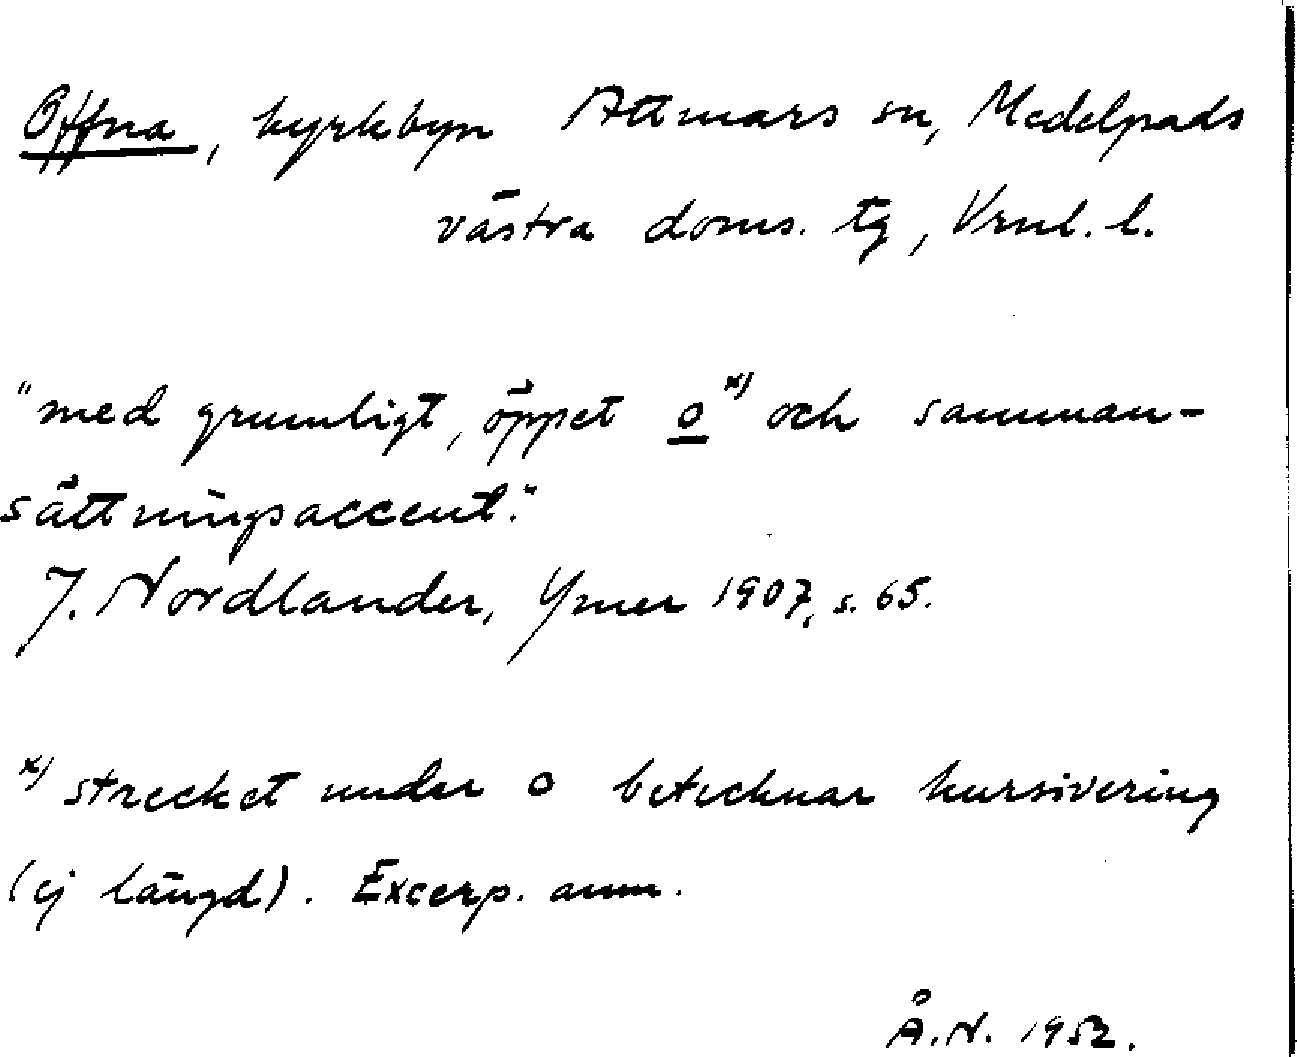 Öffna, kyrkbyn Attmars sn, Medelpads
västra doms. tg, Vrnl. l.
"med grumligt, öppet o x) och samman-
sättningsaccent."
J. Nordlander, Ymer 1907, s. 65.
x) strecket under o betecknar kursivering
(ej längd). Excerp. anm.
Å.N. 1952.